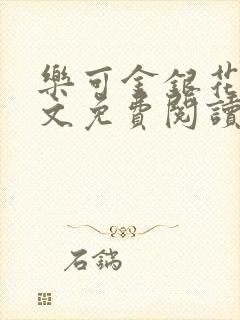 樂可金銀花
文免費閱讀
石鍋